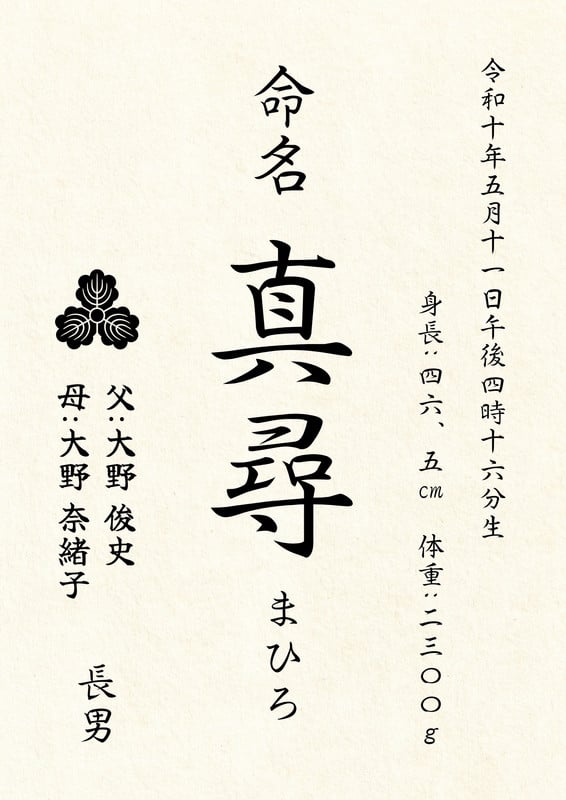 令和十年五月十一日午後四時十六分生
身長：四六、五cm　体重：二三〇〇g
命名
真尋
まひろ
父：大野 俊史
母：大野 奈緒子
長男